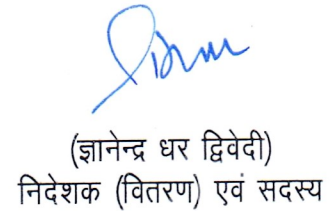 (ज्ञानेन्द्र धर द्विवेदी)
निदेशक (वितरण) एवं सदस्य